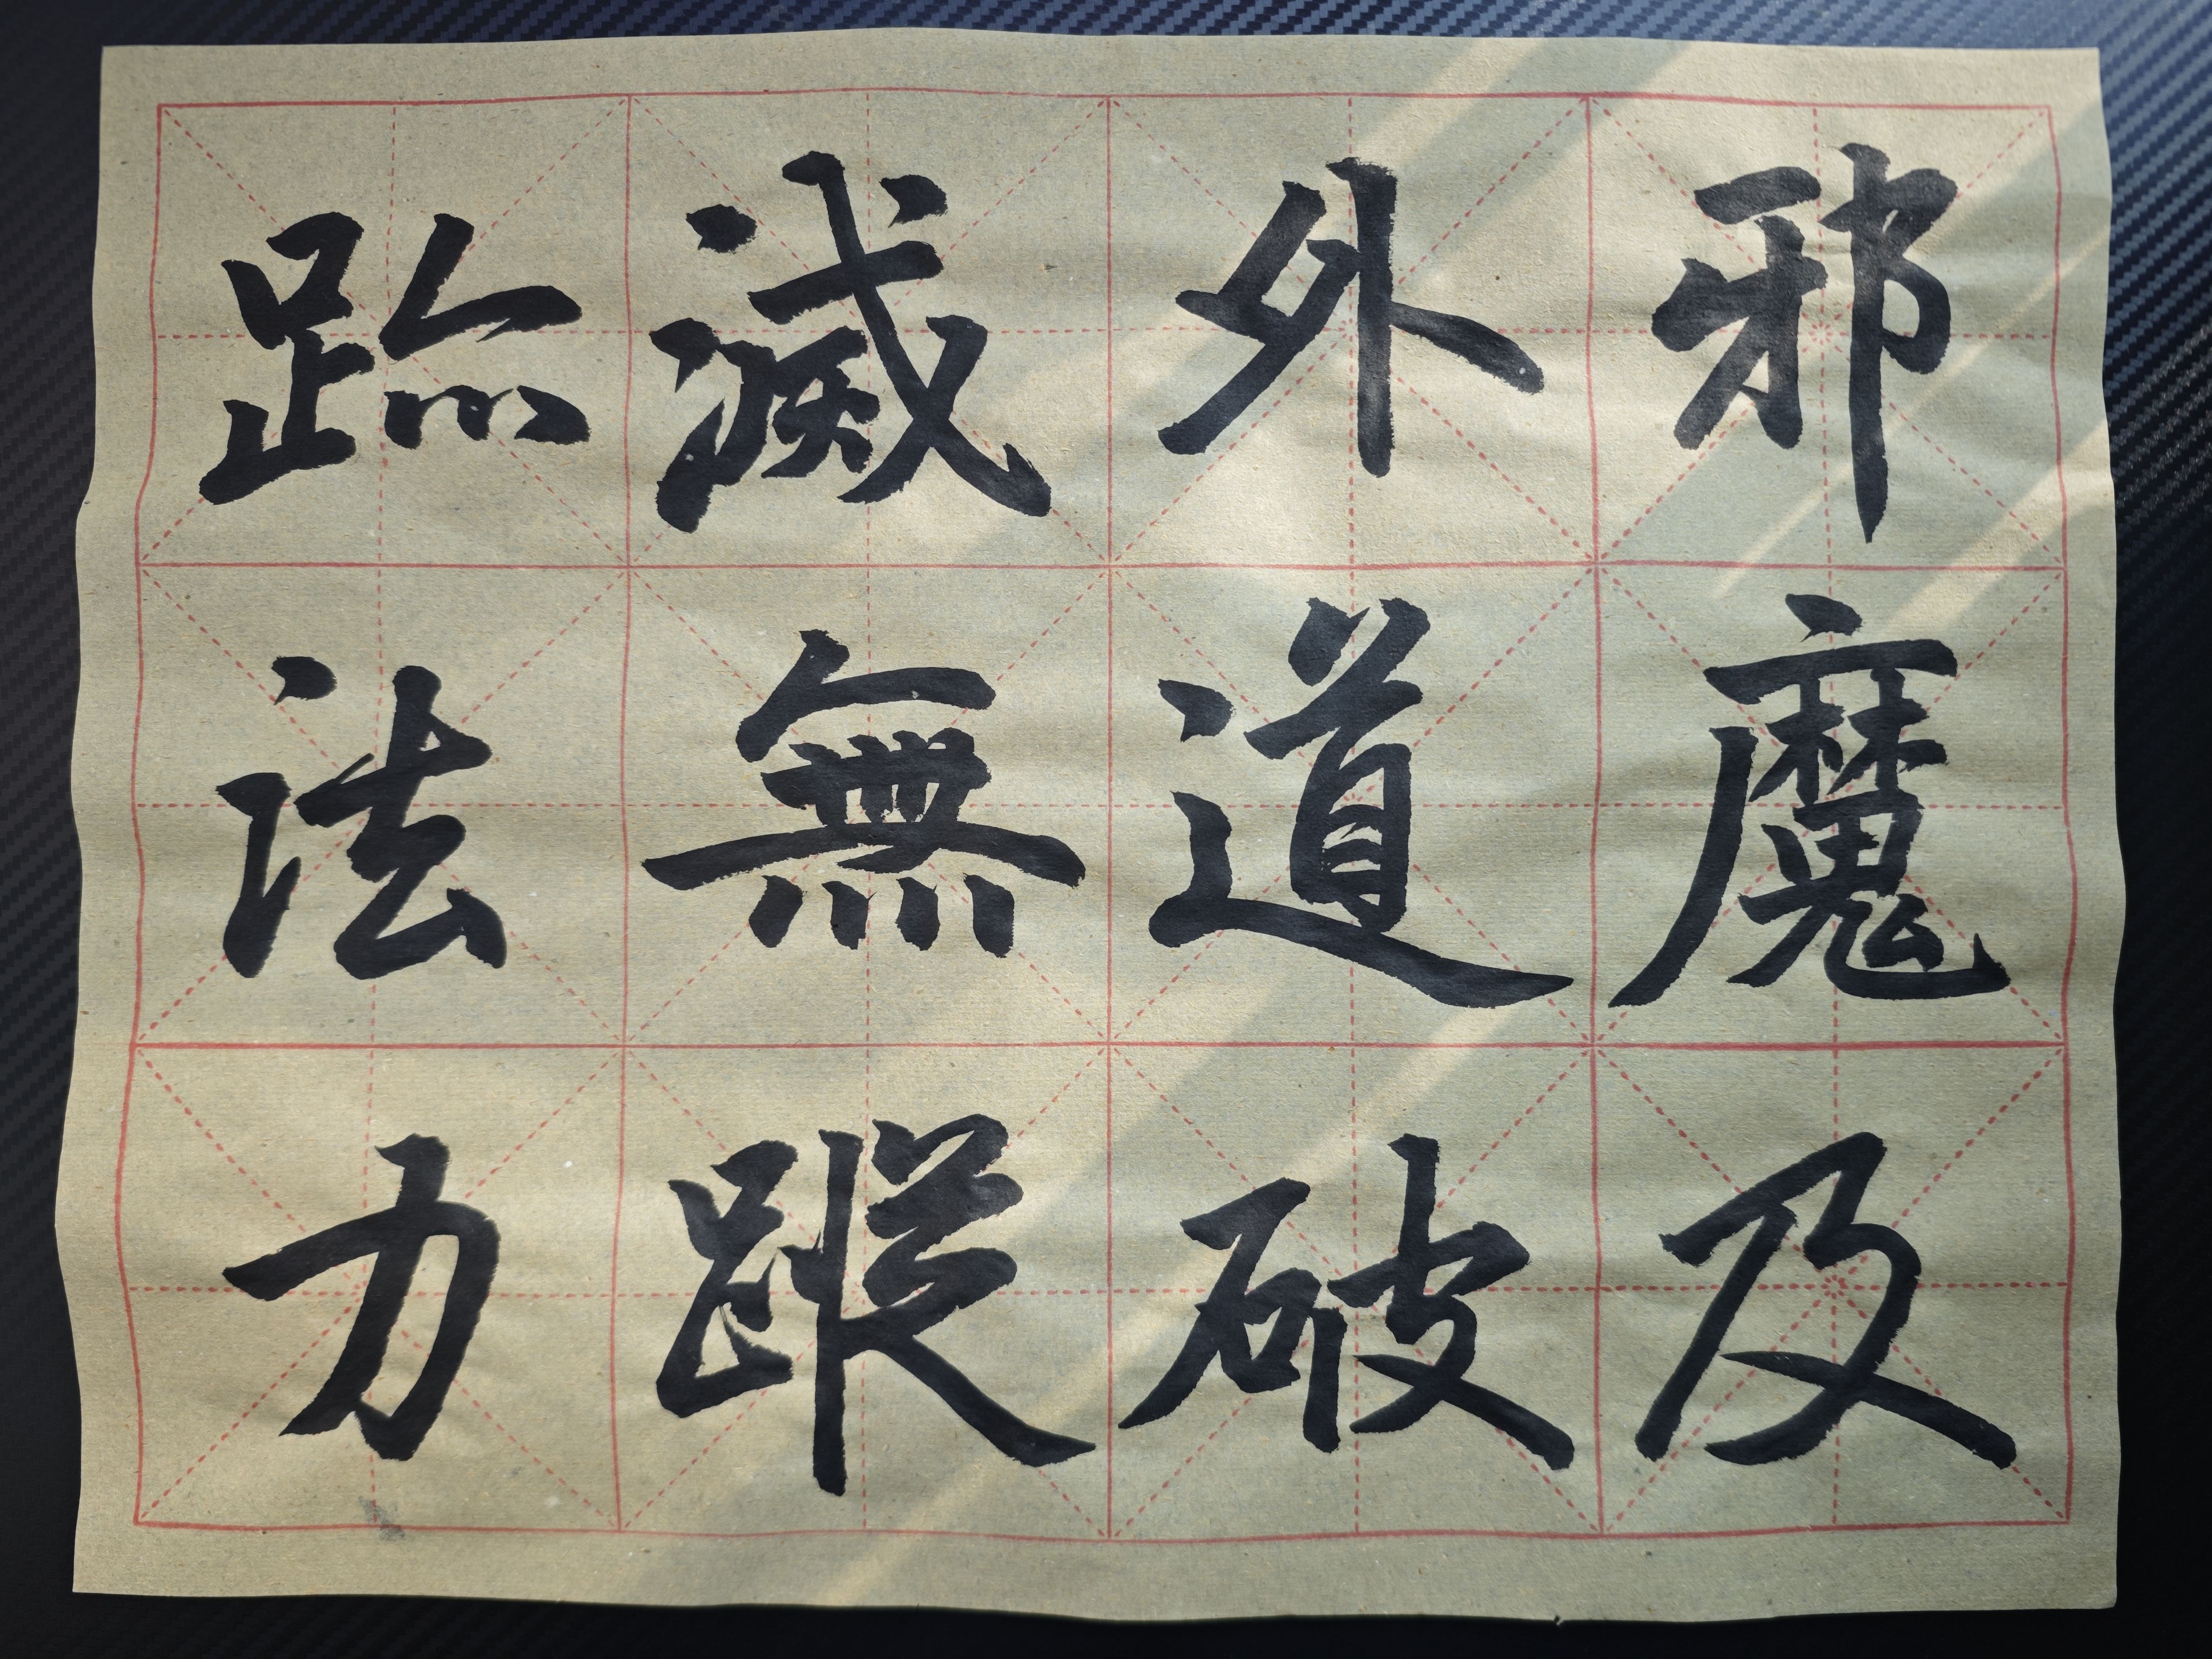 邪魔及
外道破
滅無蹤
跡法力